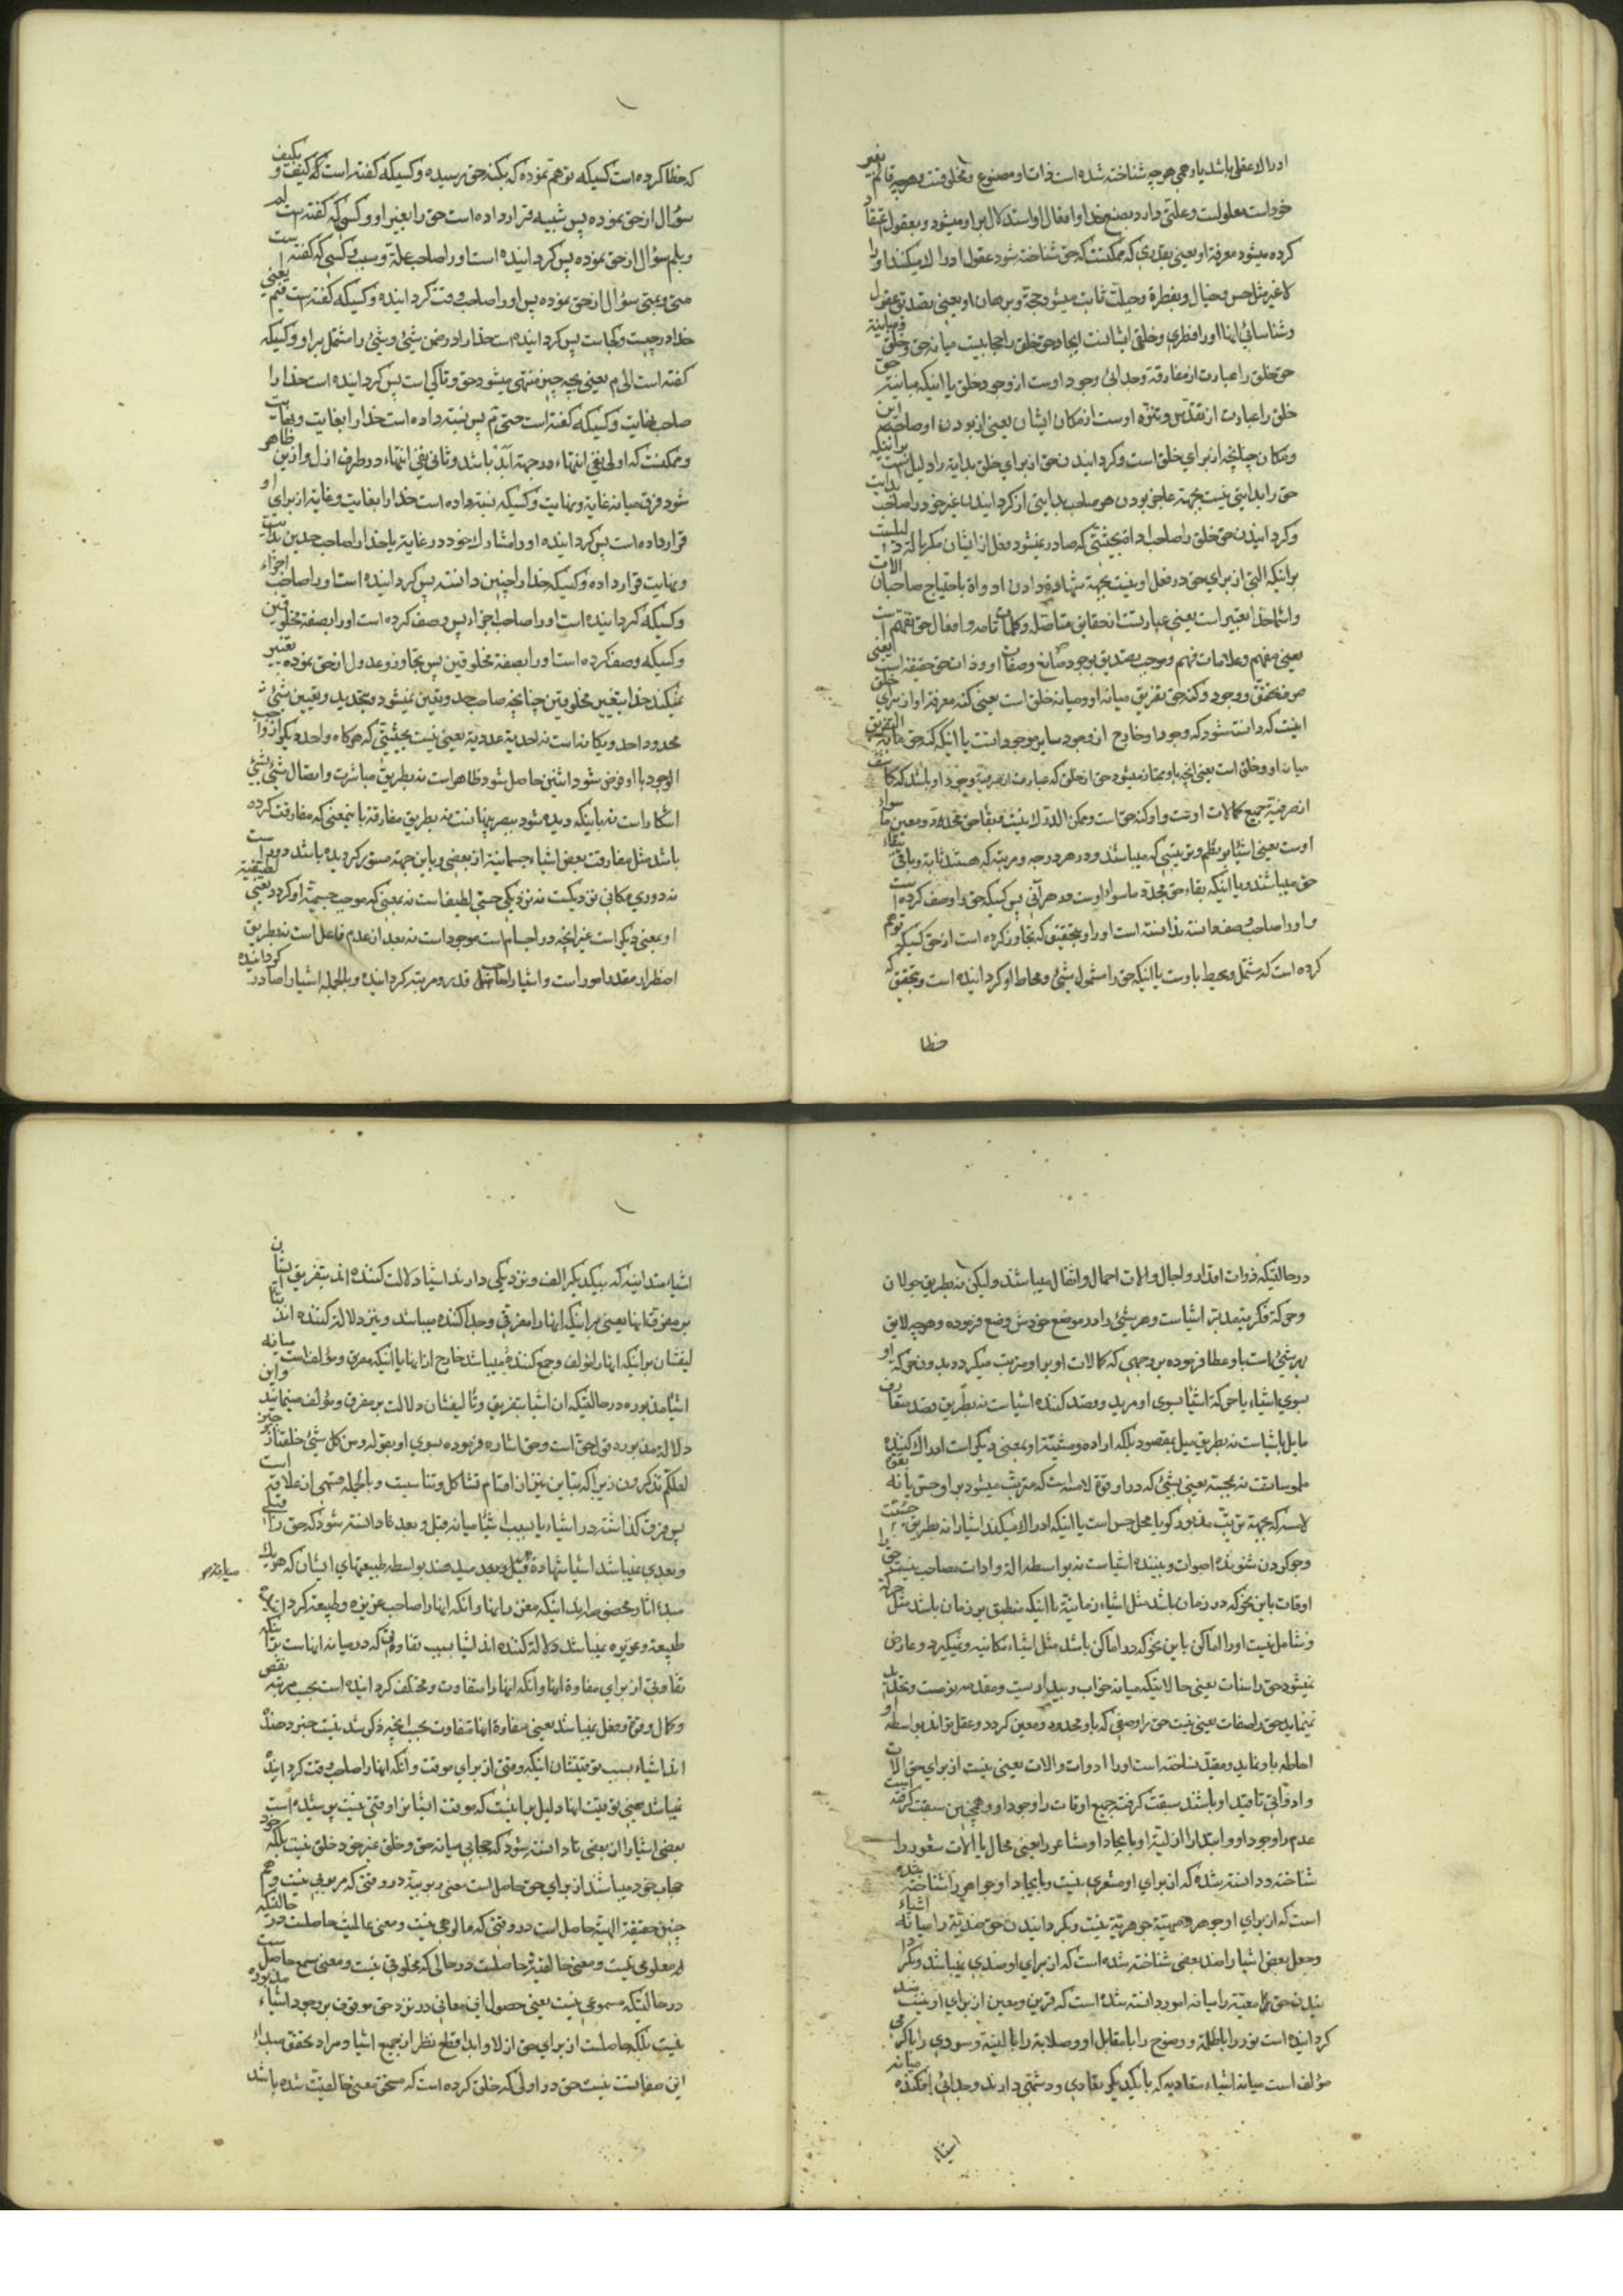 ادراك عقلي باشد يا وهمي هرچه شناخته شده است ذات او مصنوع و مخلوقست و هرچه قائم بغير
خود است معلولست و علتي دارد بصنع خدا و افعال او استدلال بر او ميشود و بعقول اعتقاد
كرده ميشود معرفة او يعني بقدري كه ممكنست كه حق شناخته شود عقول ادراك ميكند او را
لا غير مثل حس و خيال و بفطرة و جبلت ثابت ميشود حجة و برهان او يعني بصدق عقول
و شناسائي انها او را فطري و خلقي ايشانست ايجاد حق خلق را حجابيست ميانه حق و خلق و مباينة
حق خلق را عبارت از مفارقة وحداني وجود اوست از وجود خلق يا اينكه مباينة حق
خلق را عبارت از تقدس و تنزه اوست از مكان ايشان يعني از بودن او صاحب اين
و مكان چنانچه از براي خلق است و كردانيدن حق از براي خلق بداية را دليل است بر اينكه
حق را بدايتي نيست بجهة عاجز بودن هر صاحب بدايتي از كردانيدن غير خود را صاحب بدايت
و كردانيدن حق خلق را صاحب ادات بحيثيتي كه صادر نميشود فعل از ايشان مكر بالة دليلست
بر اينكه التي از براي حق در فعل او نيست بجهة شهادة دادن ادواة باحتياج صاحبان الات
و اسماء خدا تعبير است يعني عبارتست از حقايق متاصله و كلمات تامه و افعال حق تفهيم است
يعني مفهم و علامات فهم و موجب تصديق بوجود صانع و صفات او و ذات حق حقيقة است يعني
صرف تحقق و وجود و كنه حق تفريق ميانه او و ميانه خلق است يعني كنه معرفة او از براي خلق
اينست كه دانسته شود كه وجود او خارج از وجود ساير موجوداتست يا اينكه كنه حق مابه التفريق
ميانه او و خلق است يعني انچه باو ممتاز ميشود حق از خلق كه عبارت از صرفية وجود او باشد كه كاشف
از صرفية جميع كمالات اوست و اوكنه حق است و ممكن الدرك نيست و بقاء حق تحديد و معين ما سواء
اوست يعني اشيا بر نظم و ترتيبي كه ميباشند و در هر درجه و مرتبه كه هستند ثابت و باقي ببقاء
حق ميباشند و يا اينكه بقاء حق مجدد ما سواء اوست در هر آني پس كسيكه حق را وصف كرده است
و او را صاحب صفة دانسته ندانسته است او را و بتحقيق كه تجاوز كرده است از حق كسيكه توهم
كرده است كه مشتمل و محيط باوست يا اينكه حق را مشمول شيئي و محاط او كردانيده است و بتحقيق كه
خطا
كه خطا كرده است كسيكه توهم نموده كه بكنه حق رسيده و كسيكه كفته است كه كيف و بكيف
سؤال از حق نموده پس شبيه قرار داده است حق را بغير او و كسي كه كفته است لم
و بلم سؤال از حق نموده پس كردانيده است او را صاحب علة و سبب و كسي كه كفته است
متى و بمتى سؤال از حق نموده پس او را صاحب وقت كردانيده و كسيكه كفته است فيم يعني
خدا در چيست و كجاست پس كردانيده است خدا را در ضمن شيئي و شيئي را مشتمل بر او و كسيكه
كفته است الى م يعني بچه چيز منتهي ميشود حق و تا كي است پس كردانيده است خدا را
صاحب نهايت و كسيكه كفته است حتى م پس نسبة داده است خدا را بغايت و بغايت
و ممكنست كه اولي نفي انتهاء در جهة ابد باشد و ثاني نفي انتهاء در طرف ازل و ازين ظاهر
شود فرق ميانه غاية و نهايت و كسيكه نسبة داده است خدا را بغايت و غاية از براي او
قرار داده است پس كردانيده او را مشارك خود در غاية يا خدا را صاحب حدين بدايت
و نهايت قرار داده و كسيكه خدا را چنين دانسته پس كردانيده است او را صاحب اجزاء
و كسيكه كردانيده است او را صاحب اجزاء پس وصف كرده است او را بصفة مخلوقين
و كسيكه وصف كرده است او را بصفة مخلوقين پس تجاوز و عدول از حق نموده تغيير
نميكند خدا بتغيير مخلوقين چنانچه صاحب حد و تعين نميشود بتحديد و تعيين شيئي
محدود احد و يكانه است نه احدية عددية يعني نيست بحيثيتي كه هركاه واحد ديكر از واجب
الوجود با او فرض شود اثنين حاصل شود ظاهر است نه بطريق مباشرت و اتصال شيئي بشيئي
اشكار است نه باينكه ديده شود ببصر پنهانست نه بطريق مفارقة باينمعني كه مفارقت كرده
باشد مثل مفارقت بعض اشياء جسمانية از بعضي و باين جهة مستور كرديده باشد دور است
نه دوري مكاني نزديكست نه نزديكي حسي لطيف است نه بمعني كه موجب جسمية او كردد يعني لطيفية
او بمعني ديكر است غير انچه در اجسام است موجود است نه بعد از عدم فاعل است نه بطريق
اضطرار مقدر امور است و اشيا را صاحب قدر و مرتبه كردانيده و بالجمله اشيا را صادر كردانيده
در حالتيكه ذوات اقدار و اجال و الات احمال و اثقال ميباشند و ليكن نه بطريق جولان
و حركة فكر مدبر اشياست و هر شيئي را در موضع خودش وضع فرموده و هرچه لايق
بهر شيئي است باو عطا فرموده بر وجهي كه كمالات او بر او مترتب ميكردد بدون حركة او
بسوي اشياء يا حركة اشيا بسوي او مريد و قصد كننده اشياست نه بطريق قصد متعارف
مايل باشياست نه بطريق ميل بمقصود بلكه اراده و مشيئة او بمعني ديكر است ادراك كننده
ملموساتست نه بمجسة يعني بشيئي كه در او قوة لامسه است كه مترتب ميشود بر او حس يا نه بقوة
لامسه كه بجهة ترتب مذبور كويا محل حس است يا اينكه ادراك ميكند اشيا را نه بطريق جست
و جو كردن شنونده اصوات و بيننده اشياست نه بواسطه الة و ادات مصاحب نيست حق را
اوقات باين نحو كه در زمان باشد مثل اشياء زمانية يا اينكه منطبق بر زمان باشد مثل حركة
و شامل نيست او را اماكن باين نحو كه در اماكن باشد مثل اشياء مكانيه و نميكيرد و عارض
نميشود حق را سنات يعني حالتيكه ميانه خواب و بيداريست و مقدمه نومست و تحديد
نمينمايد حق را صفات يعني نيست حق را وصفي كه باو محدود و معين كردد و عقل تواند بواسطه او
احاطه باو نمايد و مقيد نساخته است او را ادوات و الات يعني نيست از براي حق الات
و ادواتي تا قيد او باشند سبقت كرفته جميع اوقات را وجود او و همچنين سبقت كرفته است
عدم را وجود او و ابتدا را ازلية او و بايجاد او مشاعر را يعني محال يا الات شعور را
شناخته و دانسته شده كه از براي او مشعري نيست و بايجاد او جواهر را شناخته شده
است كه از براي او جوهر و مهيتة جوهرية نيست و بكردانيدن حق ضدية را ميانه اشياء
و جعل بعض اشيا را ضد بعضي شناخته شده است كه از براي او ضدي نميباشد و بكردا
نيدن حق معية را ميانه امور دانسته شده است كه قرين و معين از براي او نيست ضد
كردانيده است نور را با ظلمة و وضوح را با مقابل او و صلابة را با لينة و سردي را با كرمي
مؤلف است ميانه اشياء متعاديه كه با يكديكر تعادي و دشمني دارند و جدائي افكننده ميانه
اشياء
اشياء متدانيه كه بيكديكر الف و نزديكي دارند اشيا دلالت كننده اند بتفريقشان
بر مفرق انها يعني بر اينكه انها را مفرقي و جدا كننده ميباشد و نيز دلالة كننده اند بتا
ليفشان بر اينكه انها را مؤلف و جمع كنندهٔ ميباشد خارج از انها يا اينكه مفرق و مؤلف است ميانه
اشياء مذبوره در حالتيكه ان اشيا بتفريق و تاليفشان دلالت بر مفرق و مؤلف مينمايند و اين
دلالة مذبوره قول حق است و حق اشاره فرموده بسوي او بقوله و من كل شيئ خلقنا زوجين
لعلكم تذكرون زيرا كه تباين نيز از اقسام تشاكل و تناسب است و بالجمله قسمي از علاقه است
پس فرق كذاشته در اشياء يا بسبب اشيا ميانه قبل و بعد تا دانسته شود كه حق را قبلي
و بعدي نميباشد اشيا شهادة ميدهند بواسطه طبيعتهاي ايشان كه هر يك
مبدء اثار مخصوصه اند اينكه مغرز انها و آنكه انها را صاحب غريزه و طبيعة كردانيده
طبيعة و غريزه نميباشد دلالة كننده اند اشيا بسبب تفاوتي كه در ميانه انهاست بر اينكه
تفاوتي از براي مفاوة انها و آنكه انها را متفاوت و مختلف كردانيده است بحسب مرتبه نقص
و كمال و قوة و فعل نميباشد يعني مفاوة انها متفاوت بحسب انچه ذكر شد نيست خبر دهنده
اند اشياء بسبب توقيتشان اينكه وقتي از براي موقت و آنكه انها را صاحب وقت كردانيده
نميباشد يعني توقيت انها دليل بر اينست كه موقت ايشانرا وقتي نيست پوشيده است
بعضي اشيا را از بعضي تا دانسته شود كه حجابي ميانه حق و خلق غير خود خلق نيست بلكه خود
حجاب خود ميباشند از براي حق حاصل است معني ربوبية در وقتي كه مربوبي نيست و هم
چنين حقيقة الهية حاصل است در وقتي كه مالوهي نيست و معني عالميت حاصلست در حالتيكه
معلومي نيست و معني خالقية حاصلست در حالي كه مخلوقي نيست و معني سمع حاصل است
در حالتيكه مسموعي نيست يعني حصول اين معاني در نزد حق موقوف بر وجود اشياء مذبوره
نيست بلكه حاصلست از براي حق ازلا و ابدا قطع نظر از جميع اشيا و مراد تحقق مبداء
اين صفاتست نيست حق در اولي كه خلق كرده است كه مستحق معني خالقيت شده باشد